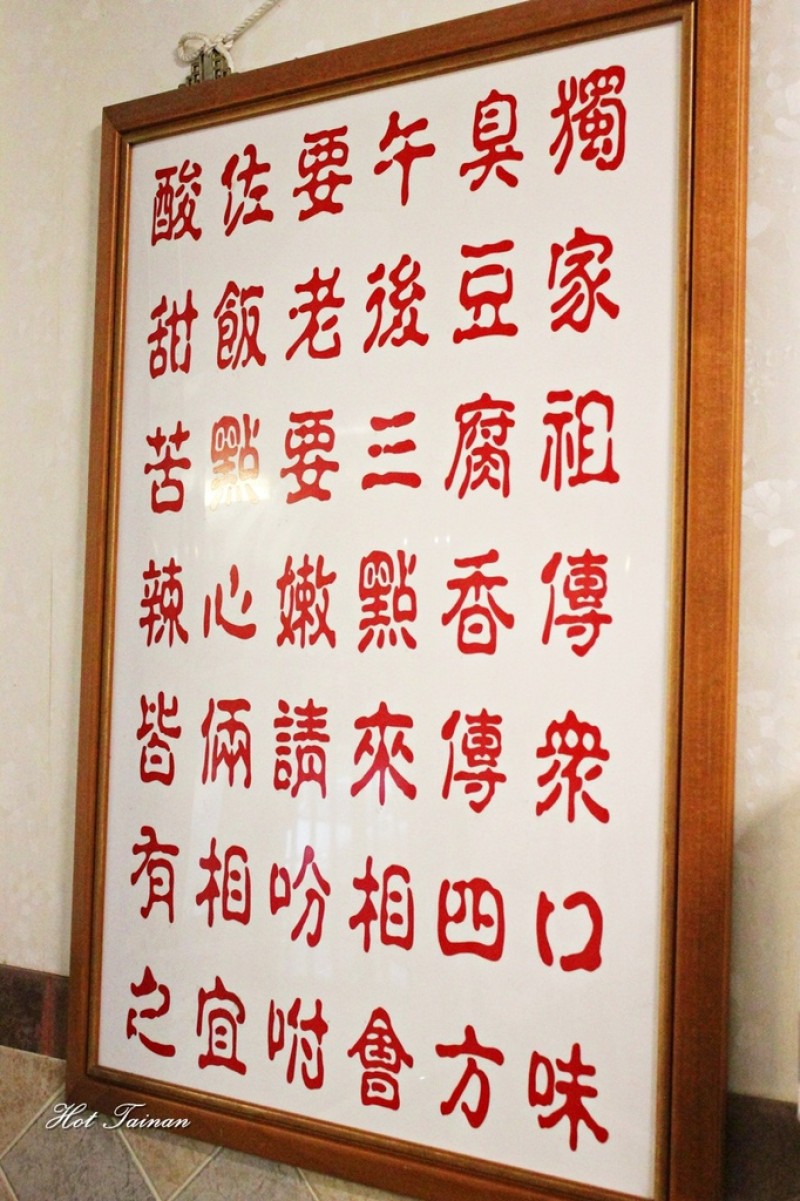 獨家祖傳衆口味
臭豆腐香傳四方
午後三點來相會
要老要嫩請吩咐
佐飯點心倆相宜
酸甜苦辣皆有之
Hot Tainan